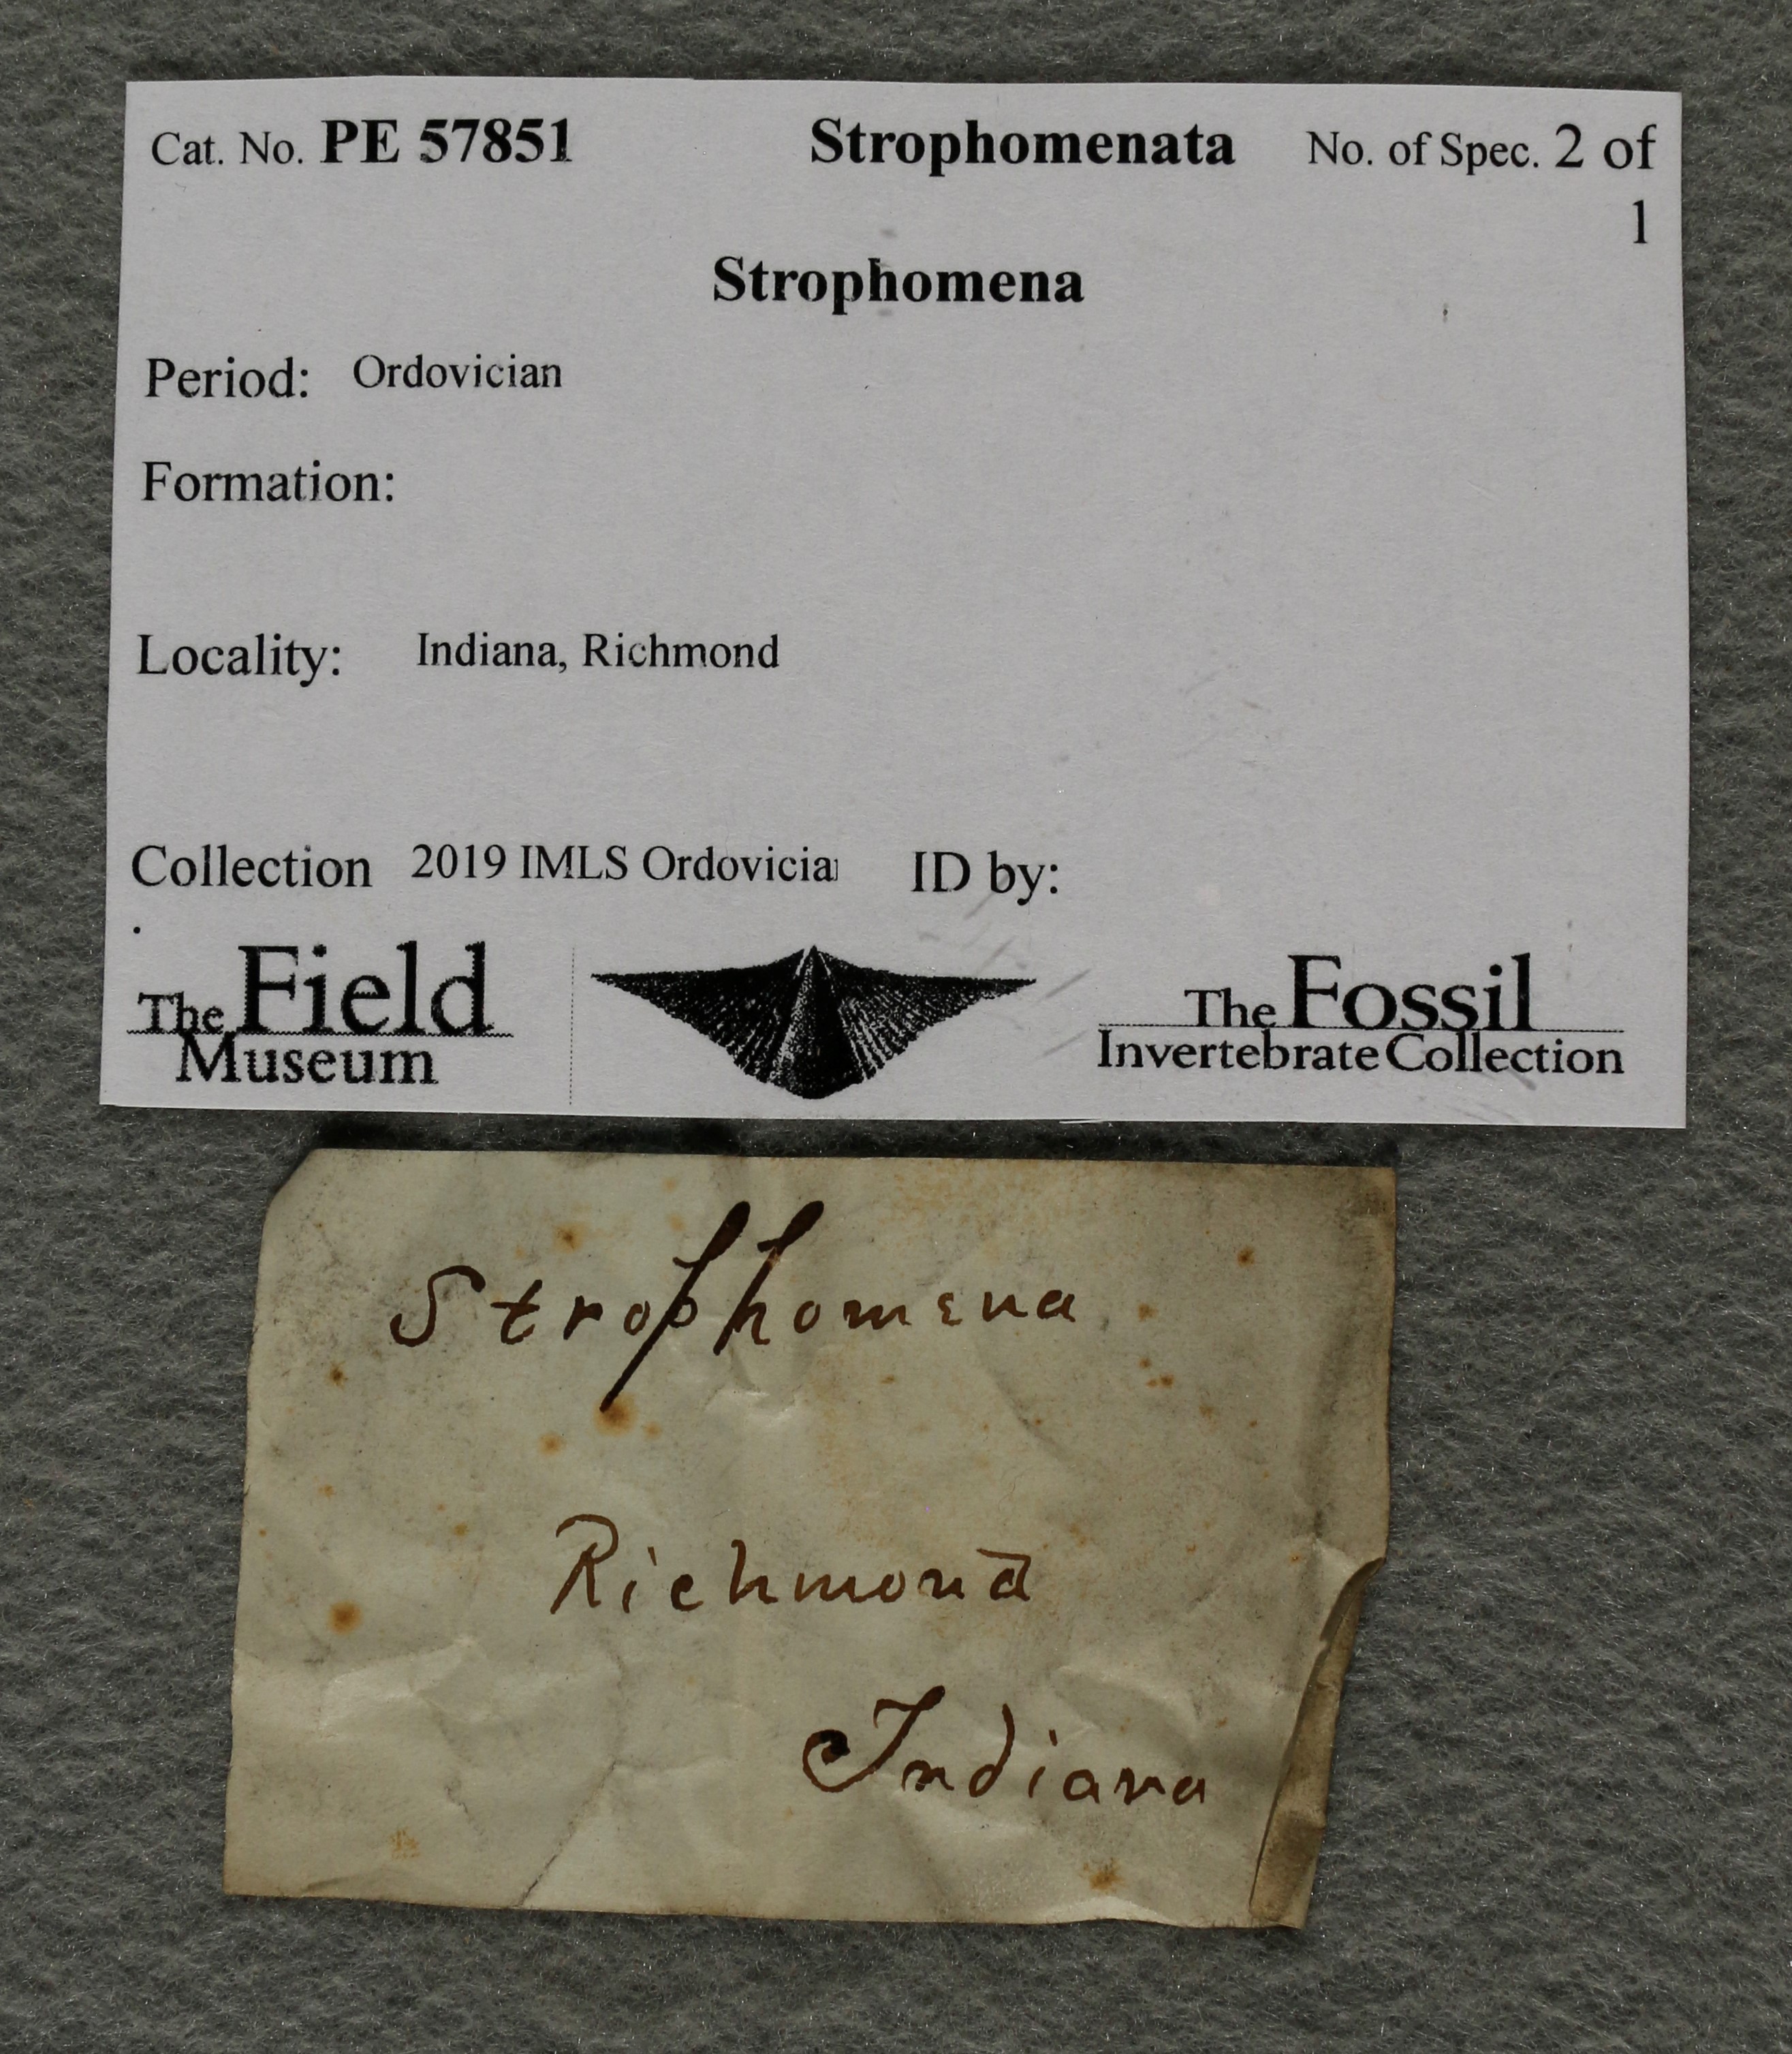 Cat. No. PE 57851 Strophomenata No. of Spec. 2 of
1
Strophomena
Period: Ordovician
Formation:
Locality: Indiana, Richmond
Collection 2019 IMLS Ordovicia ID by:
.
The Field
Museum
The Fossil
Invertebrate Collection
Strophomena
Richmond
Indiana